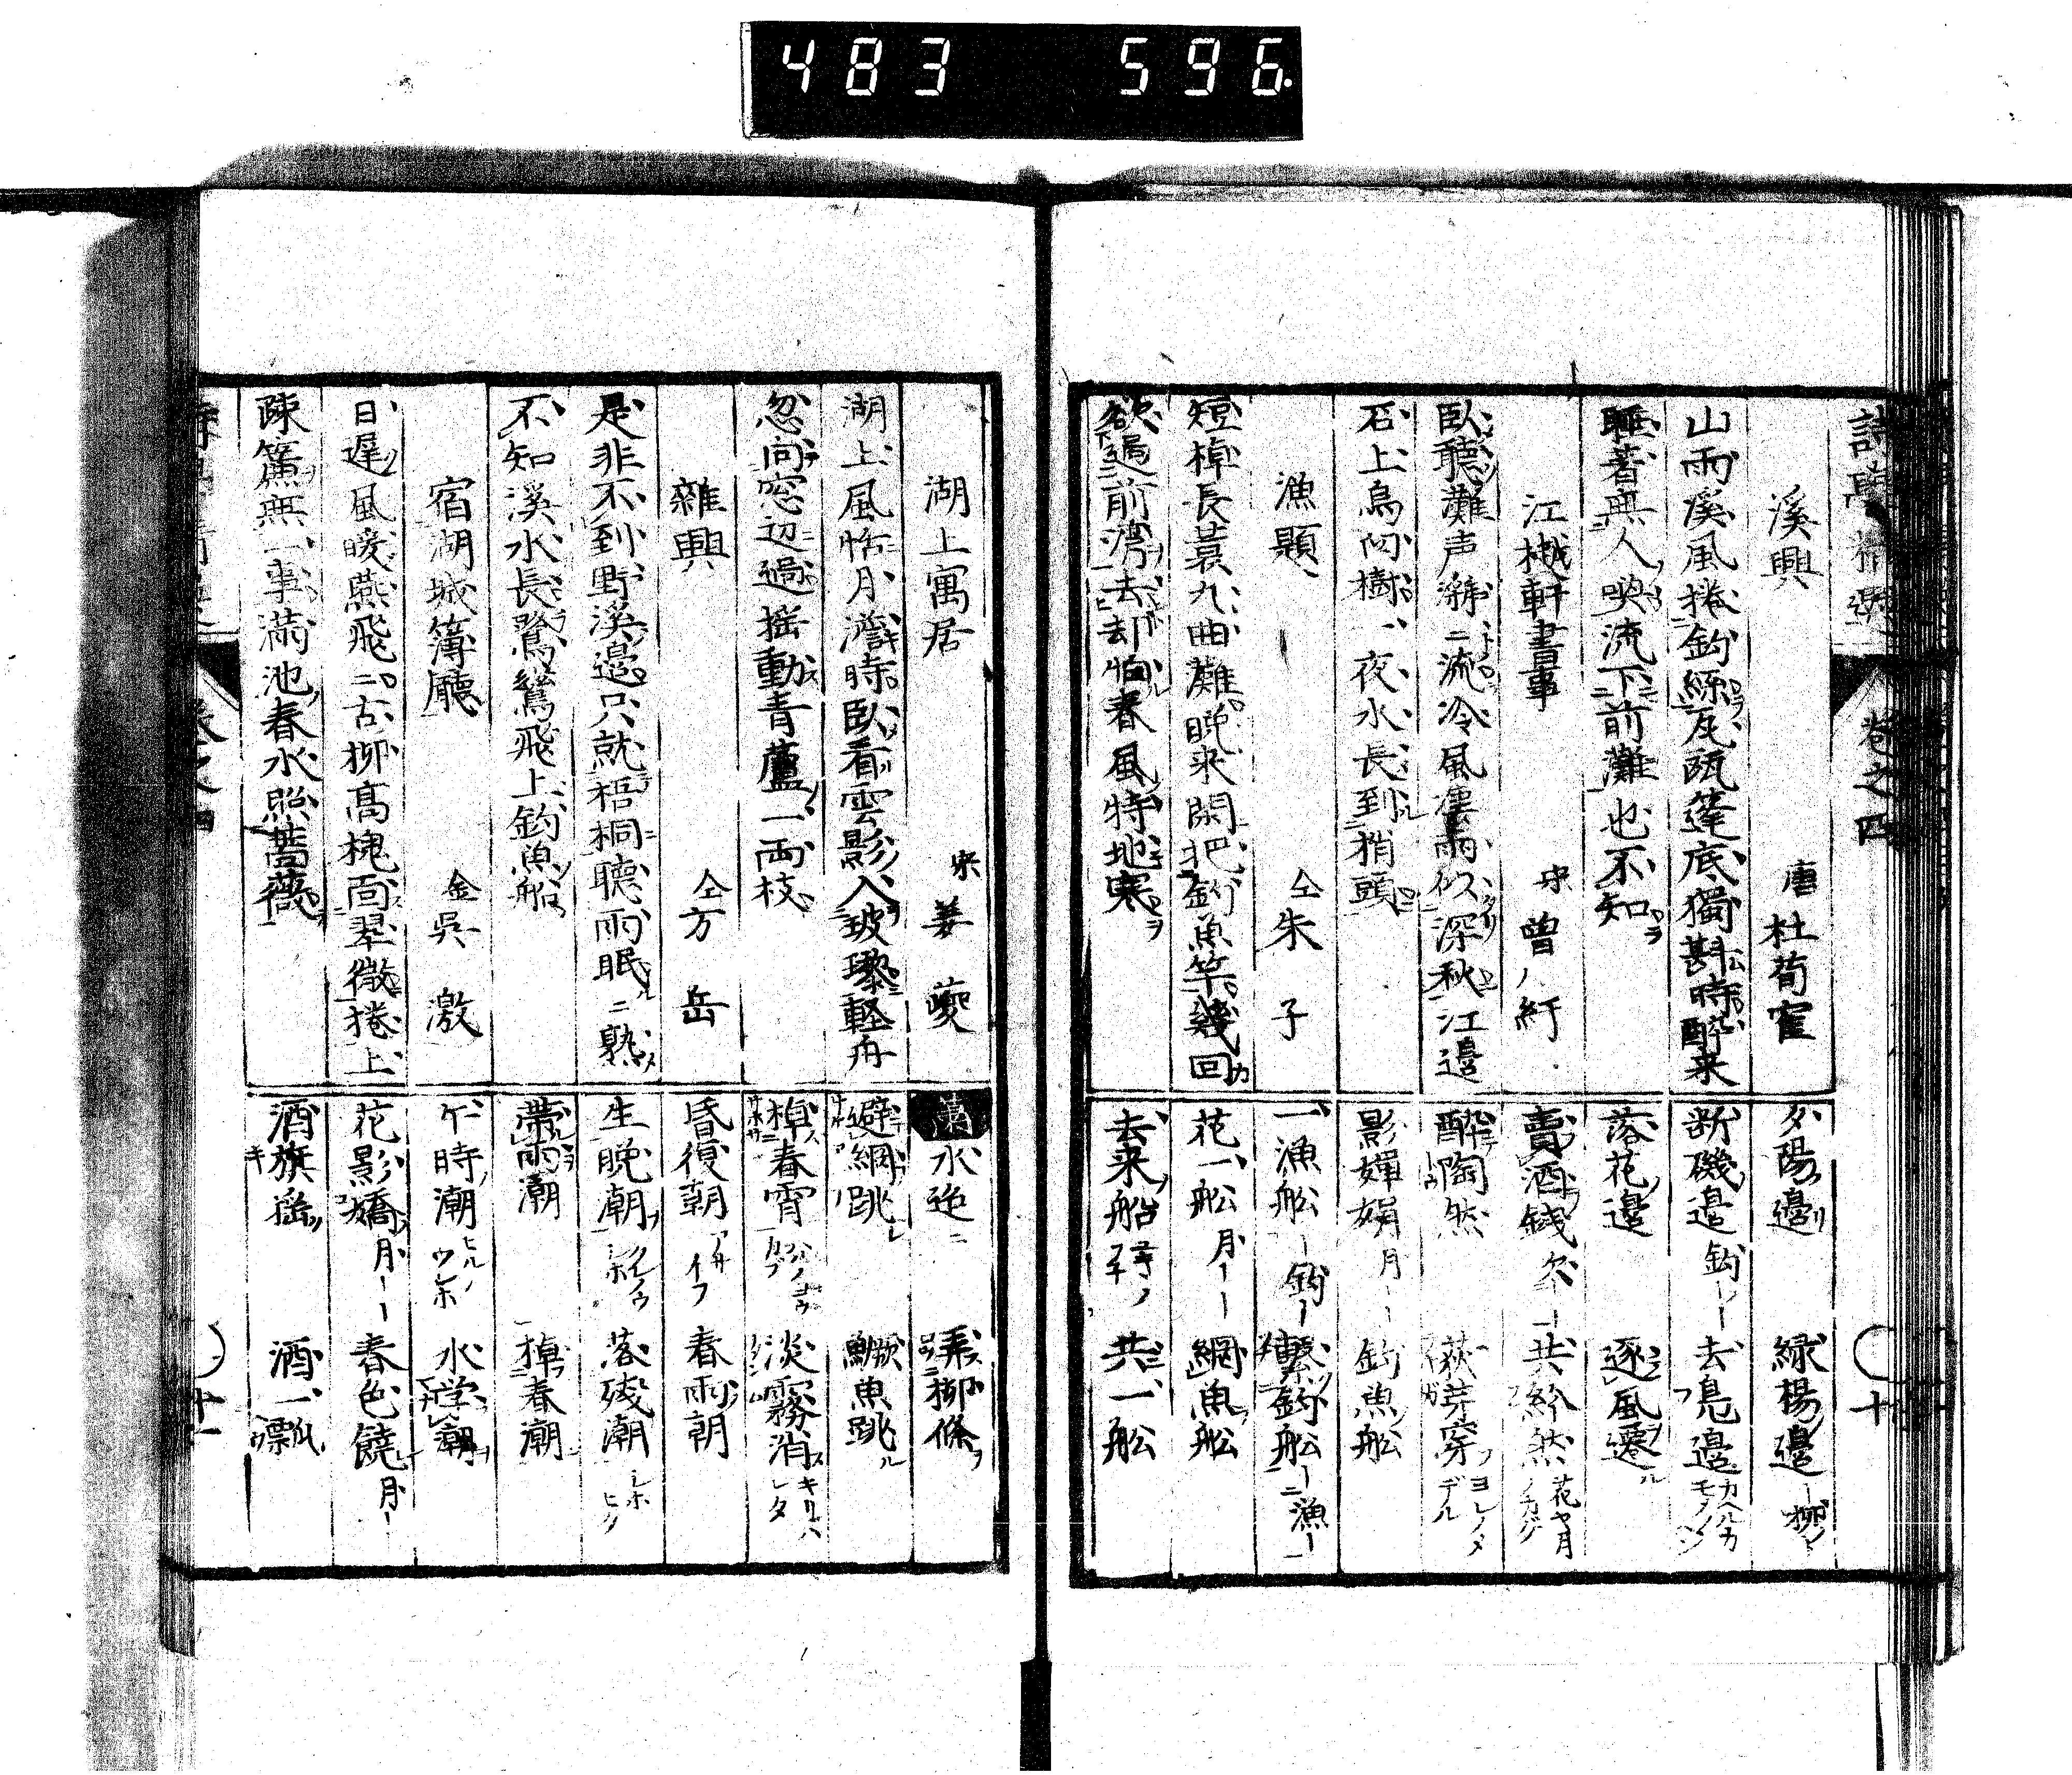 483 596.
巻之四
溪興 唐 杜荀隺
山雨溪風捲釣絲瓦甌篷底獨斟時醉来
睡著無人喚流下前灘也不知
江樾軒書事 宋 曽紆
臥聽灘声㶁二流冷風凄雨似深秋江邉
石上烏臼樹一夜水長到梢頭
漁題 仝 朱子
短棹長蓑九曲灘晩来閑把釣魚竿幾回
欲過前湾去却怕春風特地寒
夕陽邉 緑楊邉
断磯邉 去鳬邉
落花邉 逐風遷
賣酒銭 共紛然
酔陶然 荻芽穿
影嬋娟 釣魚舩
一漁舩 繫釣舩
花一舩 網魚舩
去来船 共一舩
十
湖上寓居 宋 姜夔
湖上風恬月澹時臥看雲影入玻瓈軽舟
忽向窓辺過揺動青蘆一両枝
雜興 仝 方岳
是非不到野溪邉只就梧桐聴雨眠二熟
不知溪水長鷺鶿飛上釣魚船
宿湖城簿廳 金 呉激
日遅風暖燕飛二古柳高槐面翠微捲上
疎簾無一事満池春水照薔薇
蕭 水迢二 弄柳條
避網跳 鱖魚跳
棹春宵 淡霧消
昏復朝 春雨朝
生晩潮 落残潮
帶雨潮 棹春潮
午時潮 水学潮
花影嬌 春色饒
酒旗揺 酒一瓢
十一